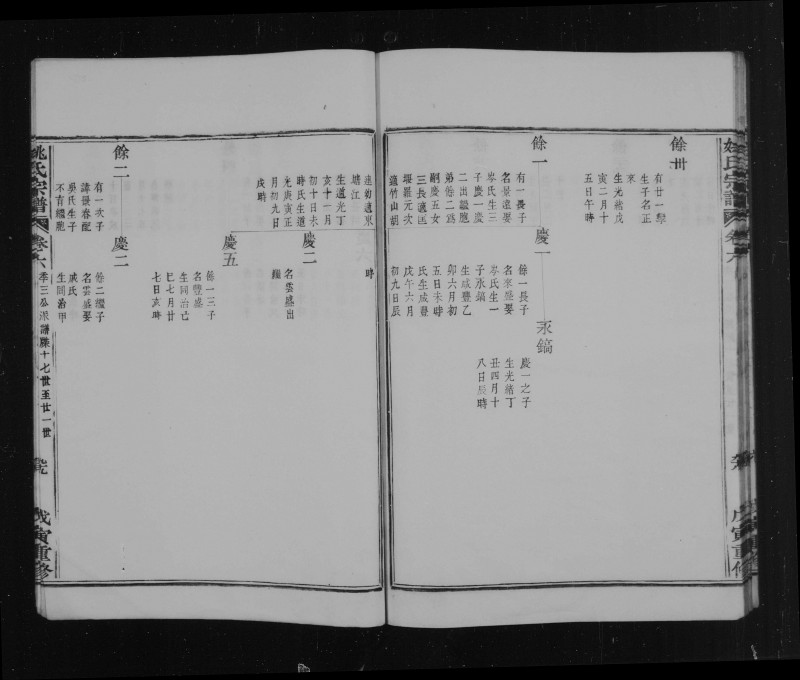 餘卅
有廿一繼
生子名正
來
生光緒戊
寅二月十
五日午時
餘一
有一長子
名景遠娶
岑氏生三
子慶一慶
二出繼胞
弟餘二爲
嗣慶五女
三長適匡
堰羅元次
適竹山胡
慶一
餘一長子
名來盛娶
岑氏生一
子永鎬
生咸豐乙
卯六月初
五日未時
氏生咸豐
戊午六月
初九日辰
時
永鎬
慶一之子
生光緒丁
丑四月十
八日辰時
連幼適東
塘江
生道光丁
亥十一月
初十日未
時氏生道
光庚寅正
月初九日
戌時
慶二
名雲盛出
繼
慶五
餘一三子
名豐盛
生同治己
巳七月廿
七日亥時
餘二
有一次子
諱景春配
吳氏生子
不育繼胞
慶二
餘二繼子
名雲盛娶
戚氏
生同治甲
姚氏宗譜
卷六
季三公派譜牒十七世至廿一世
戊寅重修